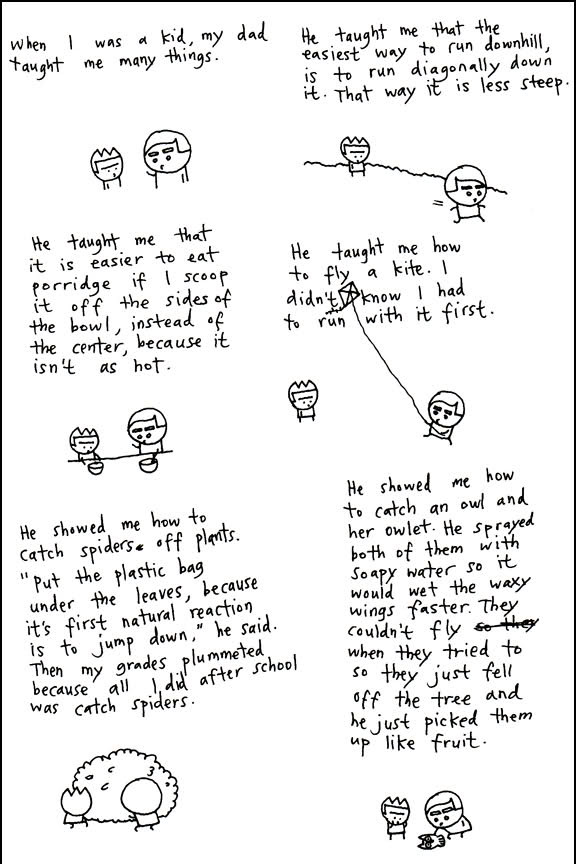 When I was a kid, my dad
taught me many things.
He taught me that the
easiest way to run downhill,
is to run diagonally down
it. That way it is less steep.
He taught me that
it is easier to eat
porridge if I scoop
it off the sides of
the bowl, instead of
the center, because it
isn't as hot.
He taught me how
to fly a kite. I
didn't know I had
to run with it first.
He showed me how to
catch spiders off plants.
"Put the plastic bag
under the leaves, because
it's first natural reaction
is to jump down," he said.
Then my grades plummeted
because all I did after school
was catch spiders.
He showed me how
to catch an owl and
her owlet. He sprayed
both of them with
soapy water so it
would wet the waxy
wings faster. They
couldn't fly so they
when they tried to
so they just fell
off the tree and
he just picked them
up like fruit.